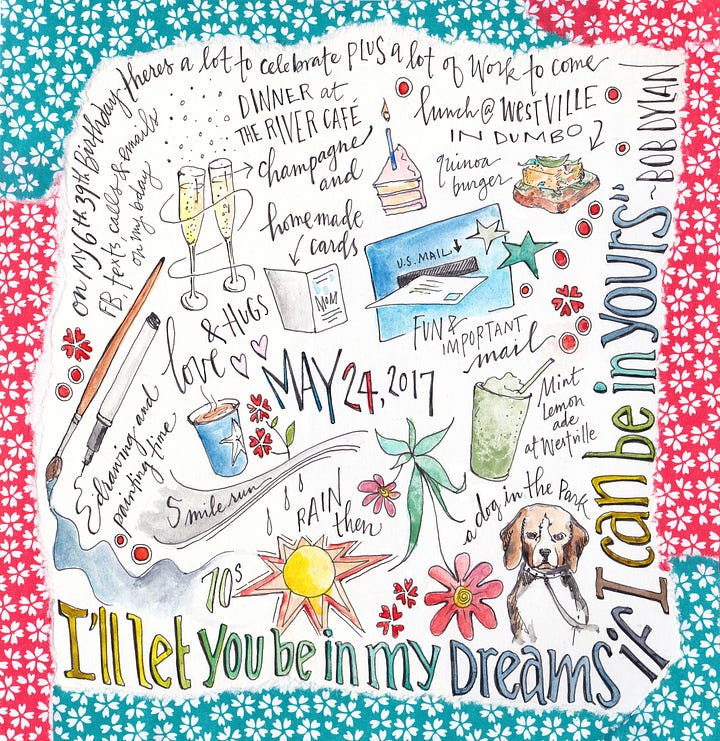 on my 6th 39th Birthday theres a lot to celebrate PLUS a lot of Work to come
FB texts calls & emails
on my bday
DINNER at
THE RIVER CAFÉ
champagne
and
homemade
cards
MOM
lunch @ WESTVILLE
IN DUMBO
quinoa
burger
U.S. MAIL
FUN &
IMPORTANT
mail
love
& HUGS
MAY 24, 2017
Mint
Lemon
ade
at Westville
drawing and
painting time
5 mile run
RAIN
then
70s
a dog in the Park
I'll let you be in my DREAMS if I can be in yours"
~BOB DYLAN